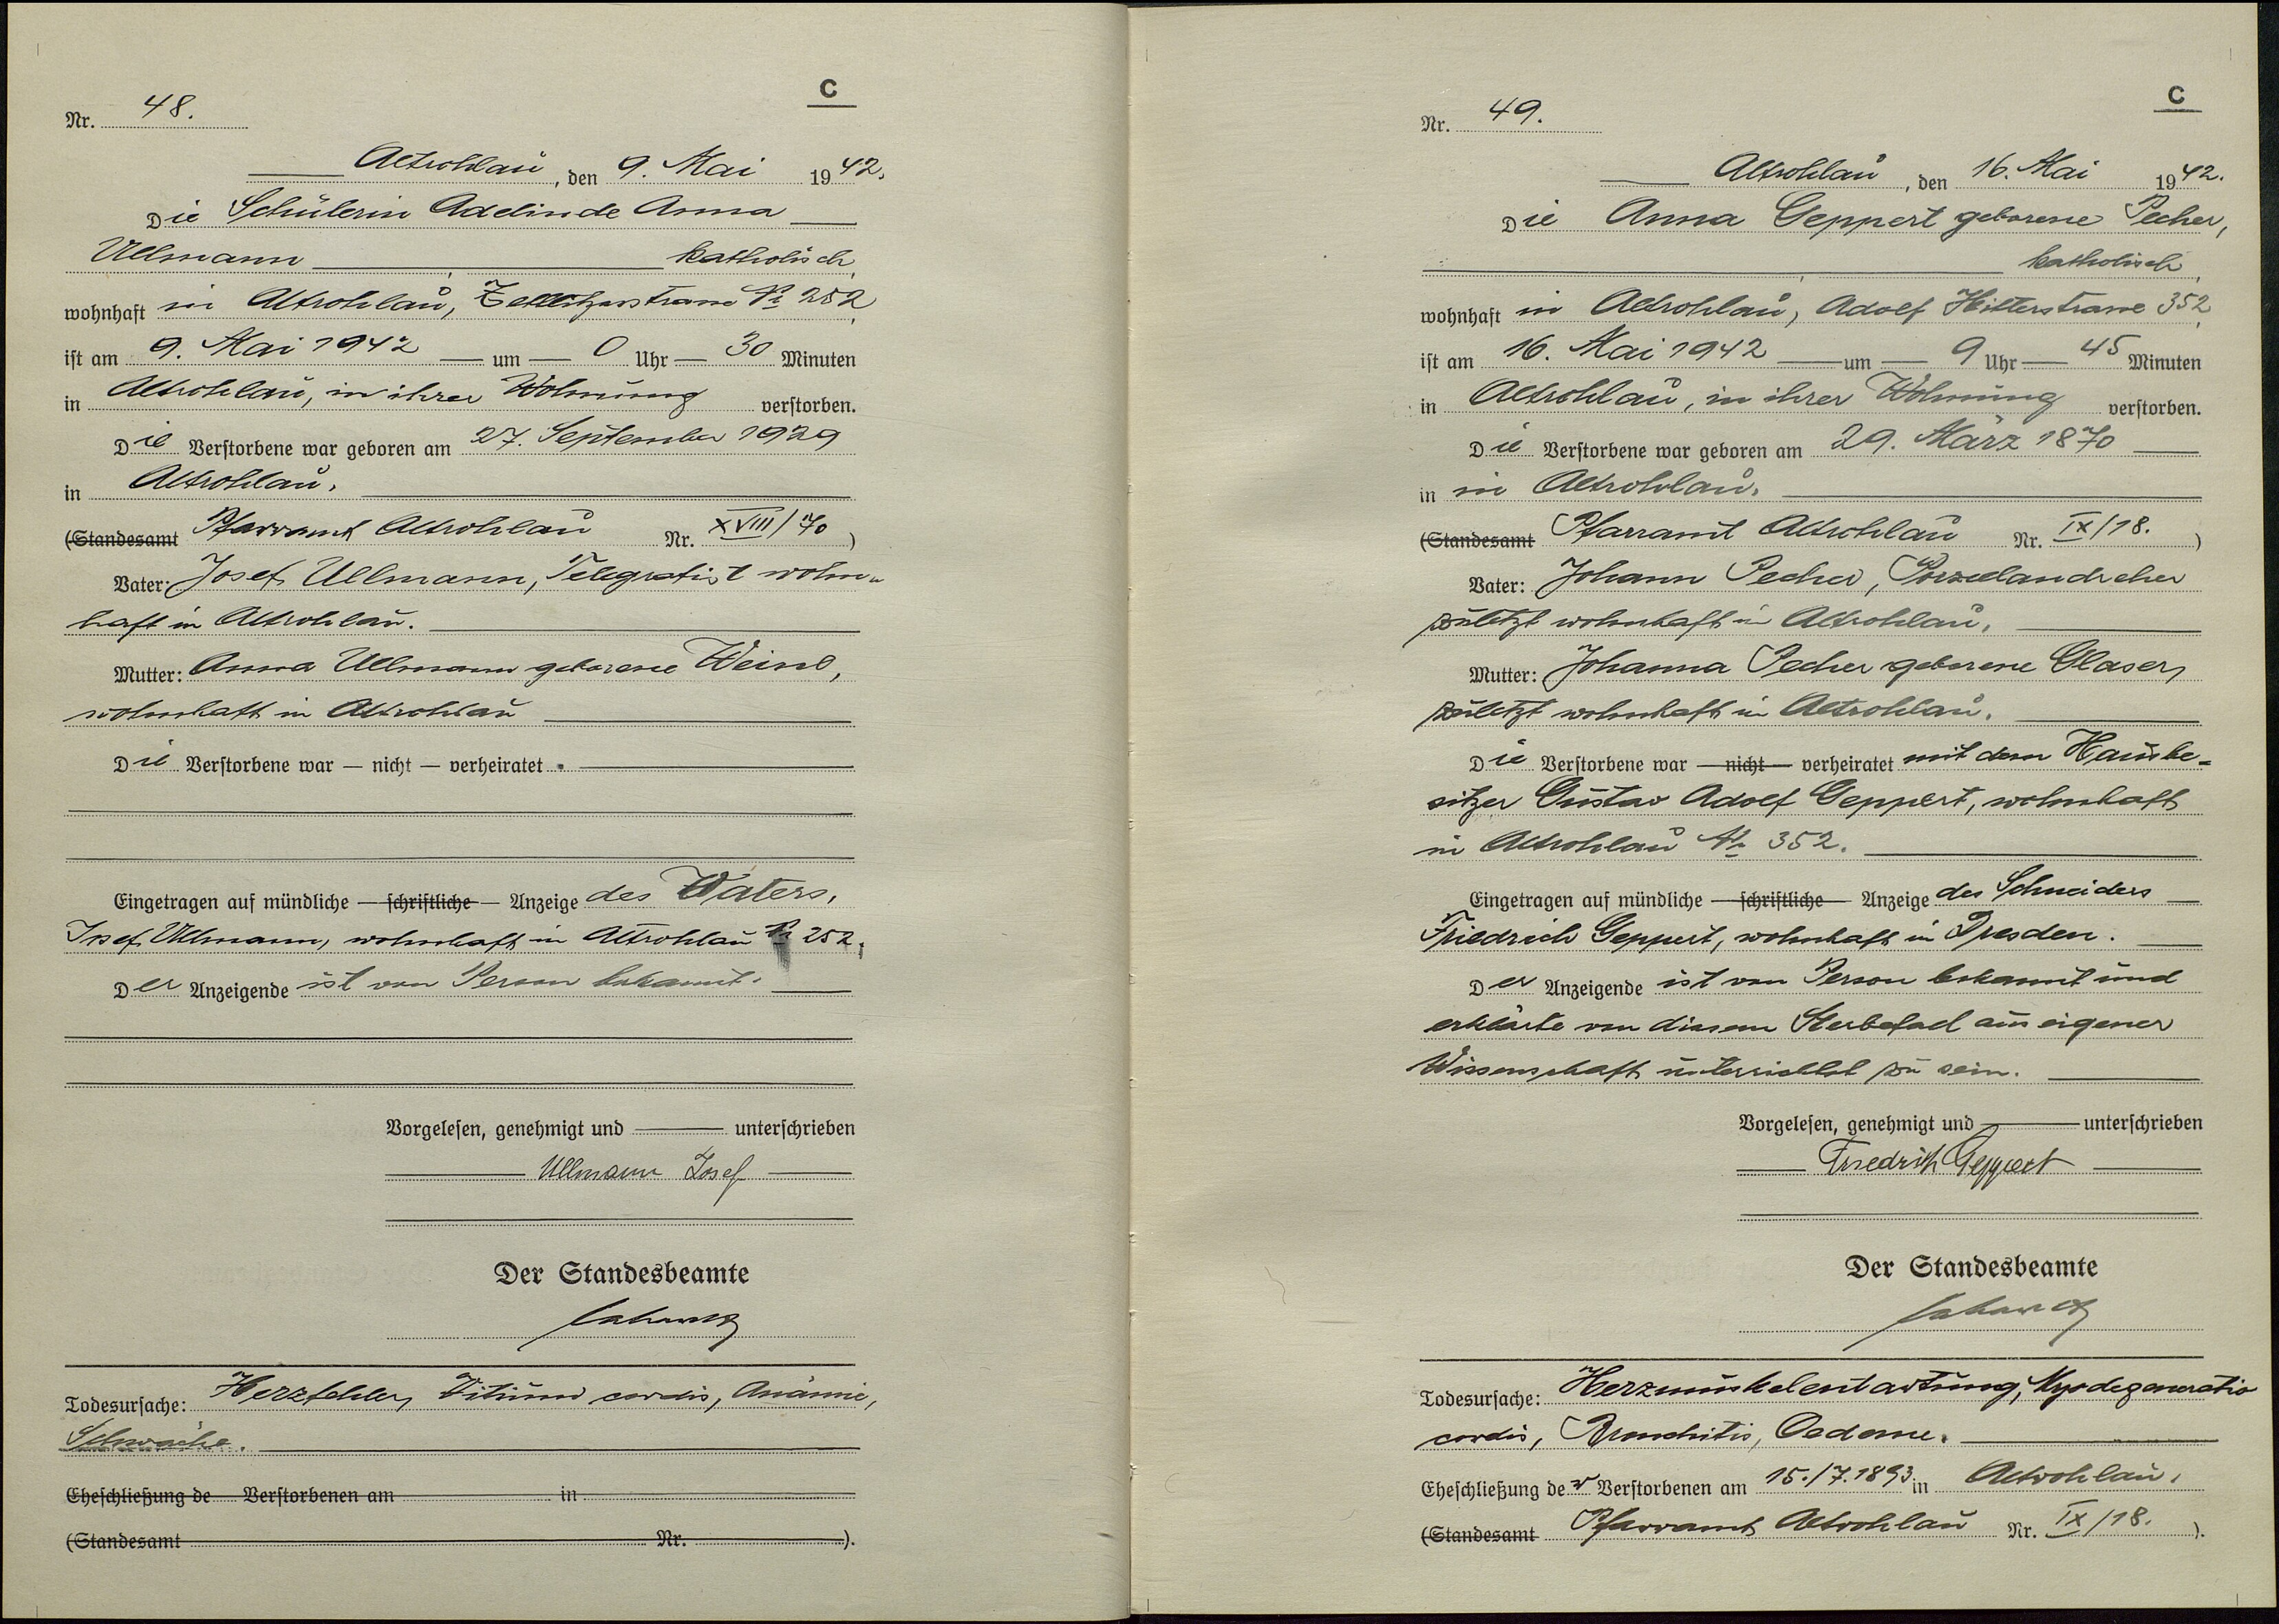 C
Nr. 48.
Altrohlau, den 9. Mai 1942.
Die Schülerin Adelinde Anna
Ullmann katholisch,
wohnhaft in Altrohlau, Zettlitzerstrasse Nr 252,
ist am 9. Mai 1942 um 0 Uhr 30 Minuten
in Altrohlau, in ihrer Wohnung verstorben.
Die Verstorbene war geboren am 27. September 1929
in Altrohlau.
(Standesamt Pfarramt Altrohlau Nr. XVIII/70)
Vater: Josef Ullmann, Telegrafist wohn-
haft in Altrohlau.
Mutter: Anna Ullmann geborene Weinl,
wohnhaft in Altrohlau
Die Verstorbene war — nicht — verheiratet.
Eingetragen auf mündliche — schriftliche — Anzeige des Vaters,
Josef Ullmann, wohnhaft in Altrohlau Nr 252.
Der Anzeigende ist von Person bekannt.
Vorgelesen, genehmigt und unterschrieben
Ullmann Josef
Der Standesbeamte
Todesursache: Herzfehler, Vitium cordis, Anämie,
Schwäche.
Eheschließung de Verstorbenen am in
(Standesamt Nr. ).
C
Nr. 49.
Altrohlau, den 16. Mai 1942.
Die Anna Geppert geborene Pecher,
katholisch,
wohnhaft in Altrohlau, Adolf Hitlerstrasse 352,
ist am 16. Mai 1942 um 9 Uhr 45 Minuten
in Altrohlau, in ihrer Wohnung verstorben.
Die Verstorbene war geboren am 29. März 1870
in in Altrohlau.
(Standesamt Pfarramt Altrohlau Nr. IX/18.)
Vater: Johann Pecher, Porzellandreher
zuletzt wohnhaft in Altrohlau.
Mutter: Johanna Pecher geborene Glaser,
zuletzt wohnhaft in Altrohlau.
Die Verstorbene war — nicht — verheiratet mit dem Hausbe-
sitzer Gustav Adolf Geppert, wohnhaft
in Altrohlau Nr 352.
Eingetragen auf mündliche — schriftliche — Anzeige des Schneiders
Friedrich Geppert, wohnhaft in Dresden.
Der Anzeigende ist von Person bekannt und
erklärte von diesem Sterbefall aus eigener
Wissenschaft unterrichtet zu sein.
Vorgelesen, genehmigt und unterschrieben
Friedrich Geppert
Der Standesbeamte
Todesursache: Herzmuskelentartung, Myodegeneratio
cordis, Bronchitis, Oedeme.
Eheschließung der Verstorbenen am 15./7.1893 in Altrohlau.
(Standesamt Pfarramt Altrohlau Nr. IX/18. ).